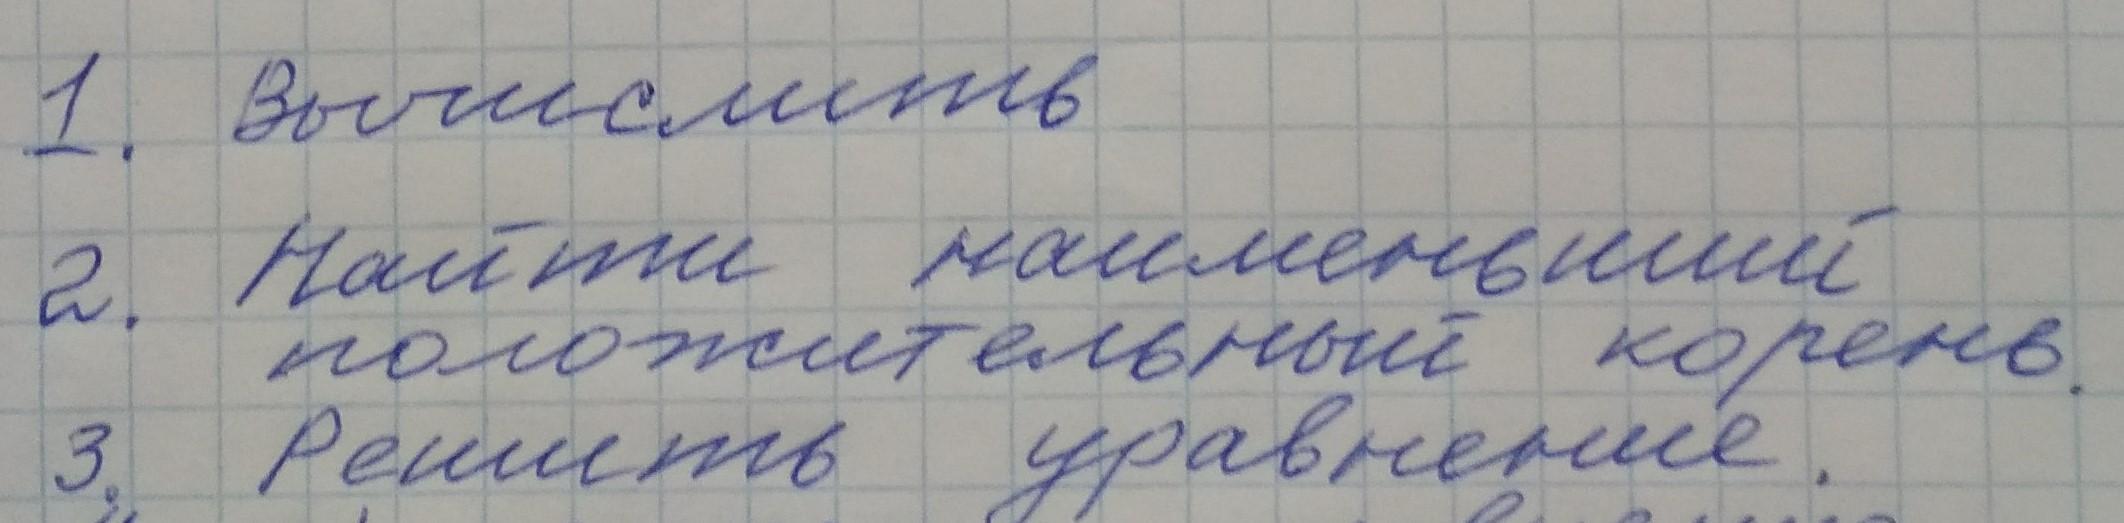 1. Вычислить
2. Найти наименьший
положительный корень.
3. Решить уравнение.